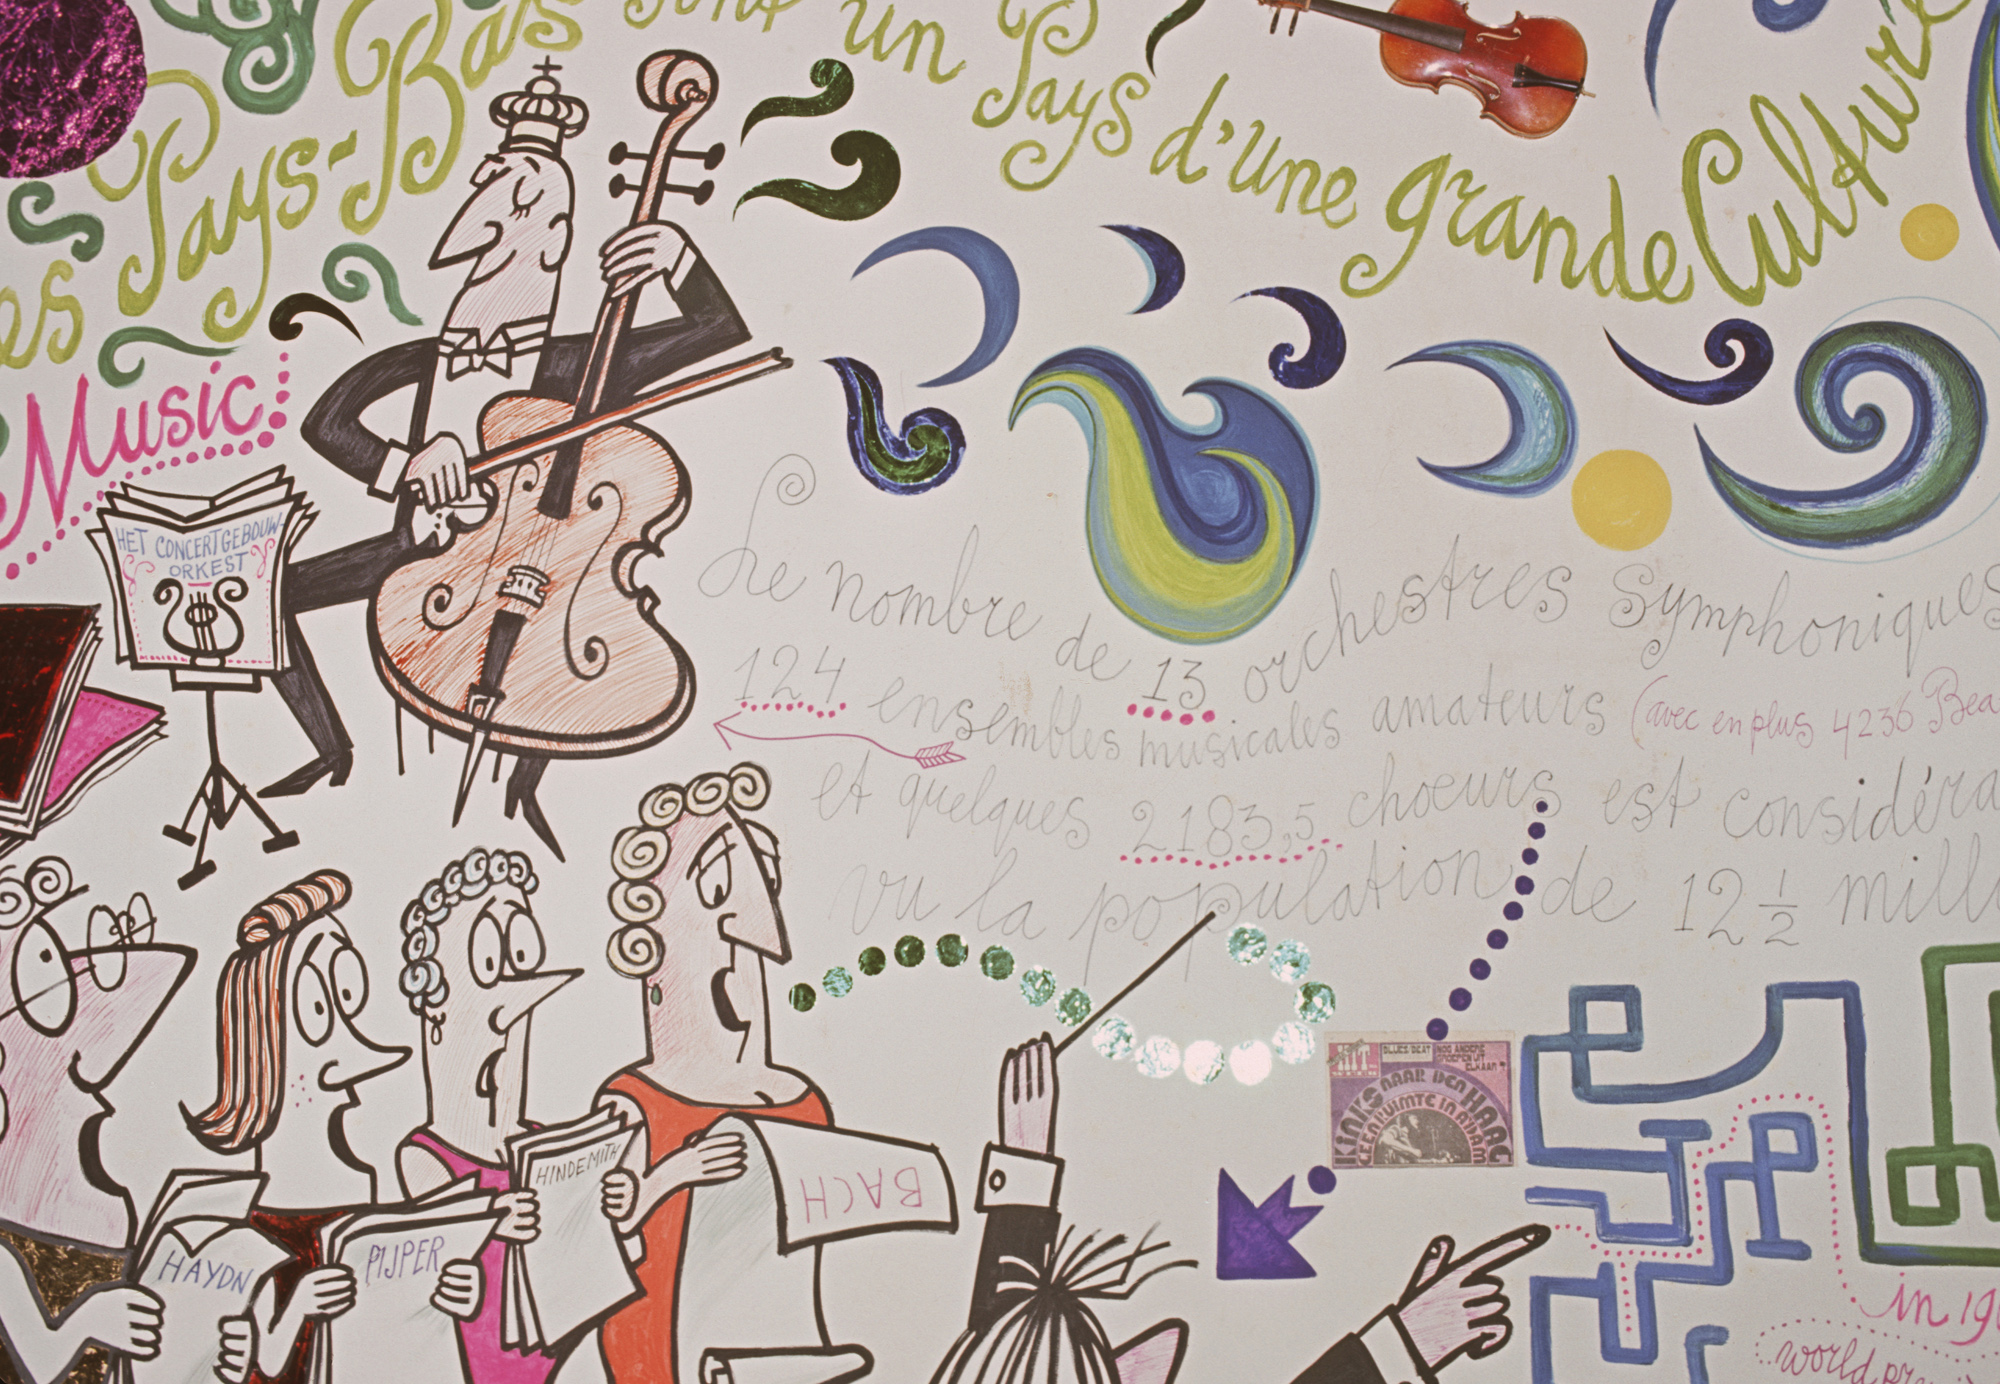 es Pays-Bas sont un Pays d'une grande Culture
Music
HET CONCERTGEBOUW-
ORKEST
Le nombre de 13 orchestres symphoniques
124 ensembles musicales amateurs (avec en plus 4236 Bea
et quelques 2183,5 choeurs est considéra
vu la population de 12 1/2 milli
HIT
BLUES/BEAT
NOG ANDERE
GROEPEN UIT
ELKAAR
KINKS NAAR DEN HAAG
GEEN RUIMTE IN A'DAM
HAYDN
PIJPER
HINDEMITH
BACH
in 19
world pr